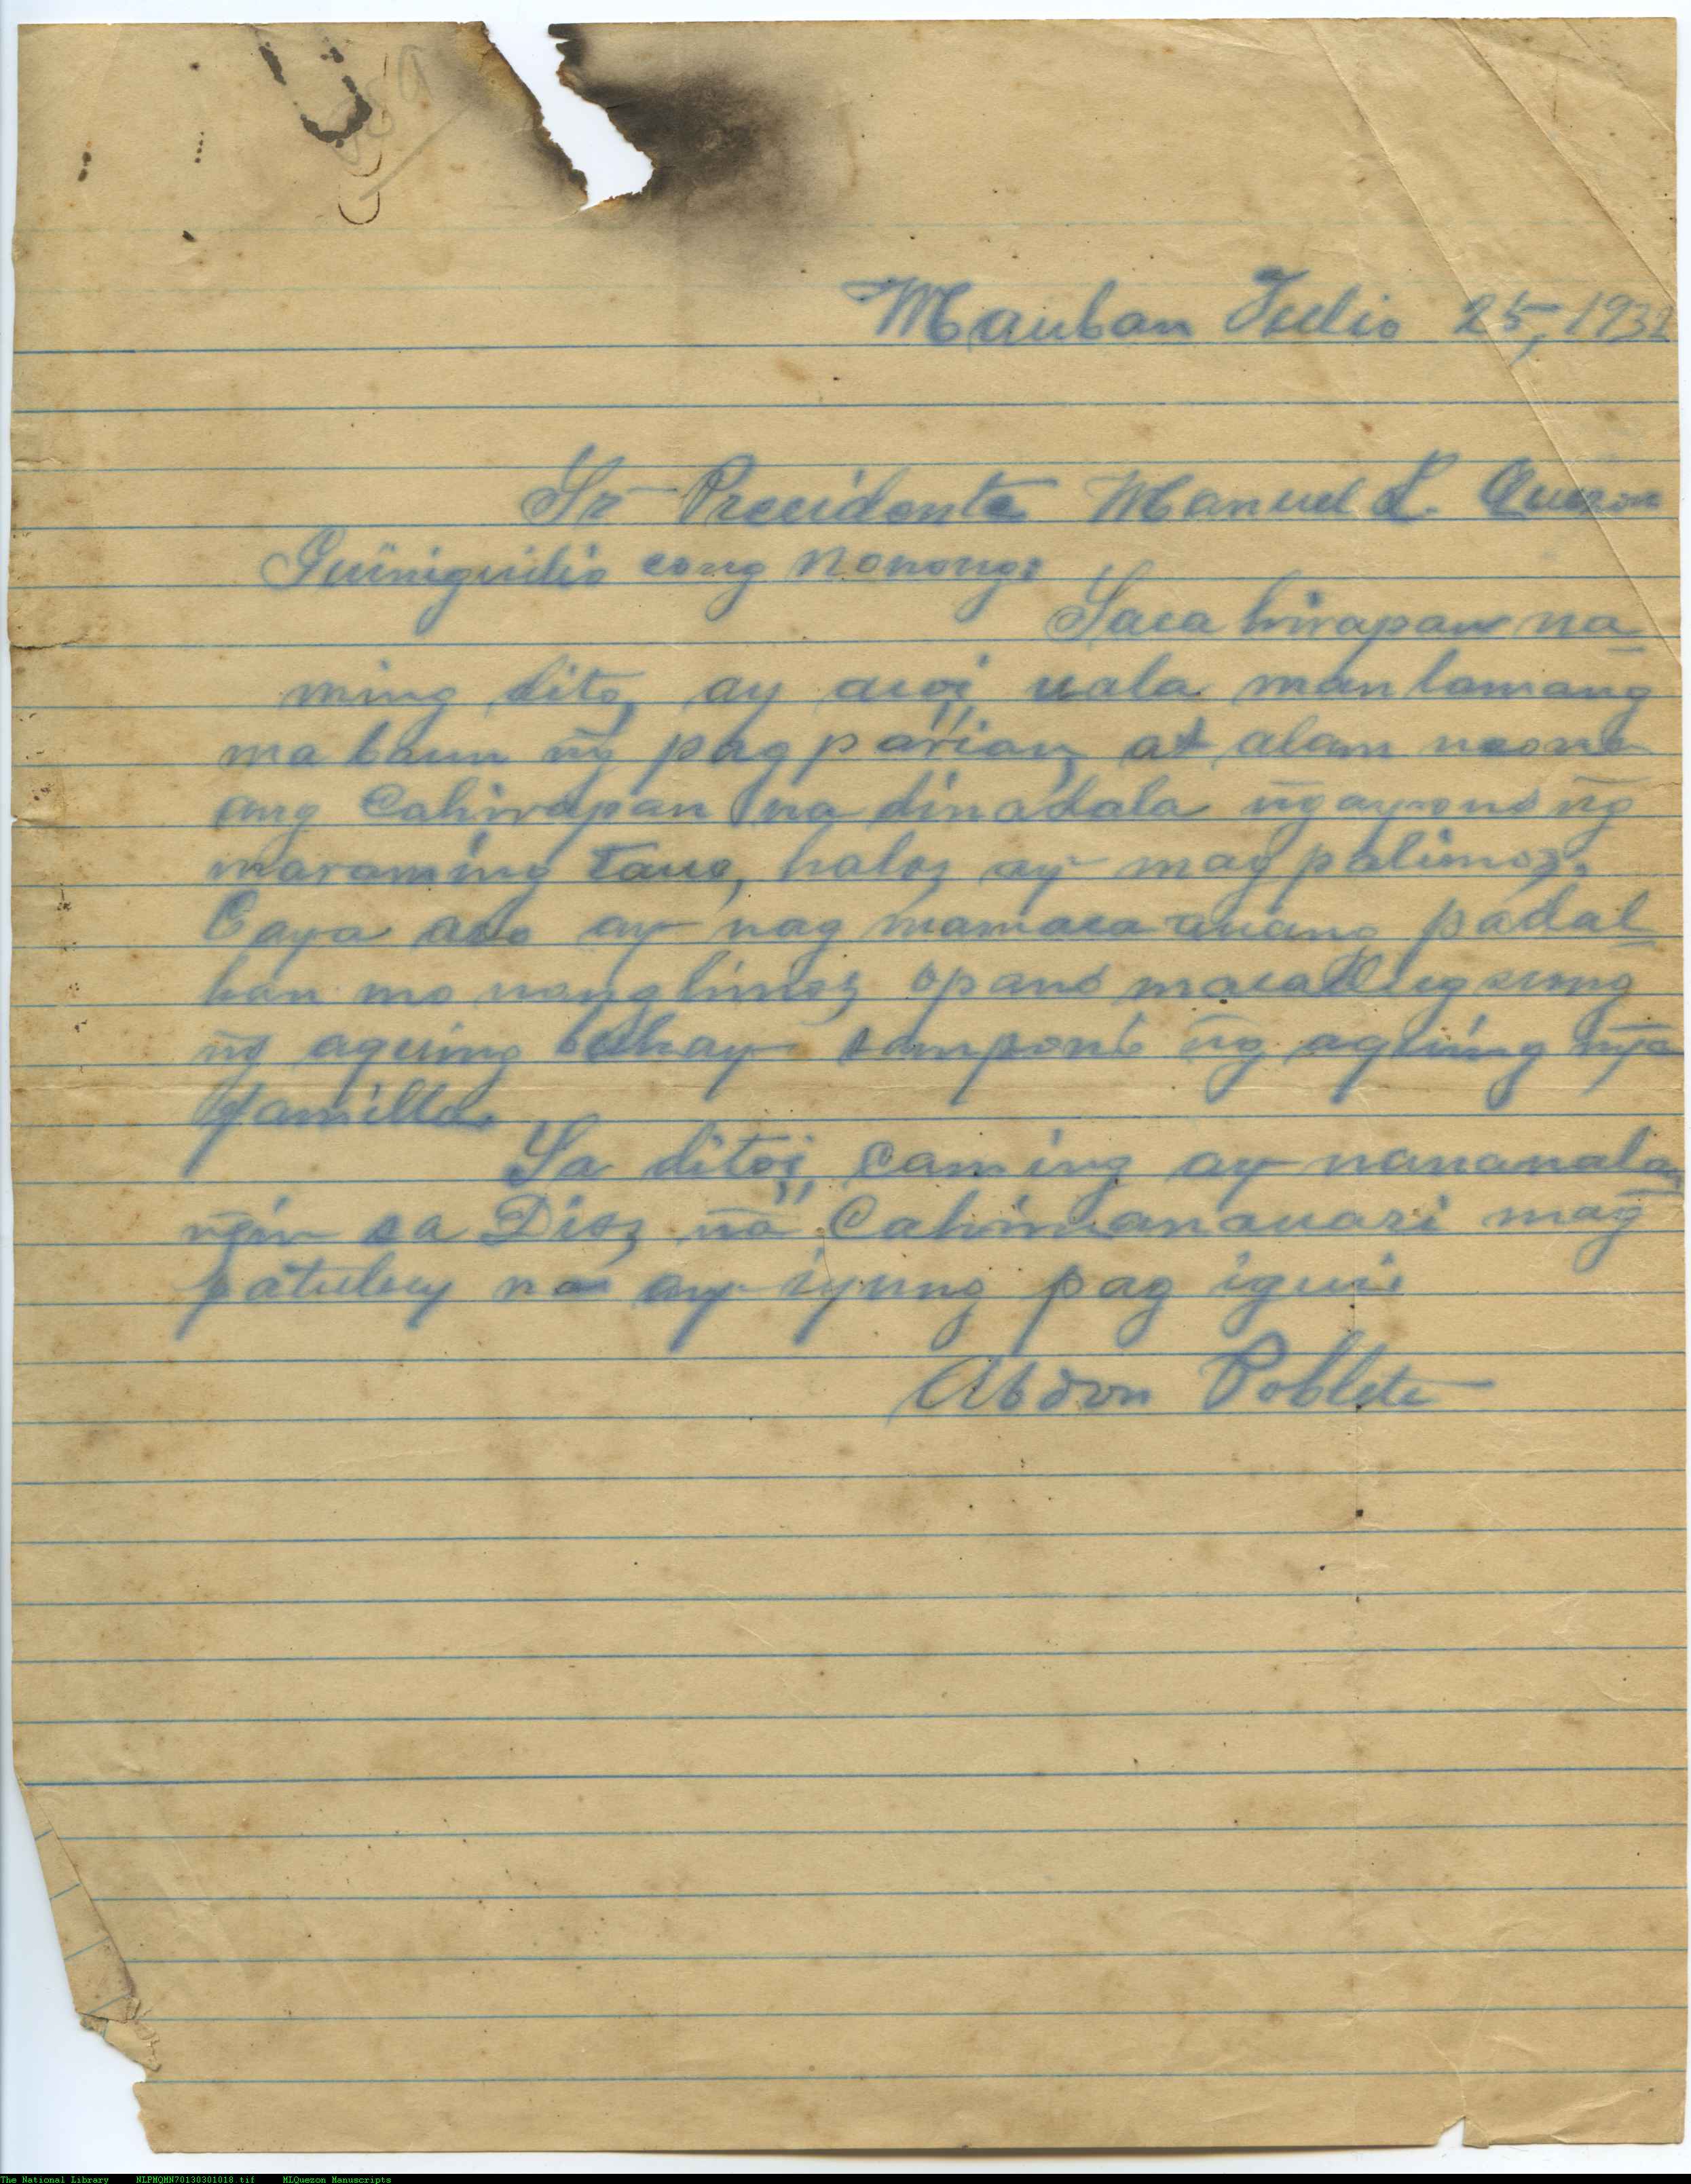 Mauban Julio 25, 1932
Sr Precidente Manuel L. Quezon
Guiniguilio cong Nonong:
Saca hirapan na
ming dito, ay acoi, uala man lamang
ma baun ñg pag parian, at alam
ang Cahirapan na dinadala ñgayong ñg
maraming tauo, halos ay mag palimos.
Caya aco ay nag mamaca auang padal-
han mo limos opang
ñg aquing bahay sampong ñg aquing mga
familla.
Sa ditoi, caming ay nananala
ñgin sa Dios na Cahimanauari mag
patuluy na ay iyung pag igui.
Abdon Poblete
The National Library NLPMQMN70130301018.tif MLQuezon Manuscripts